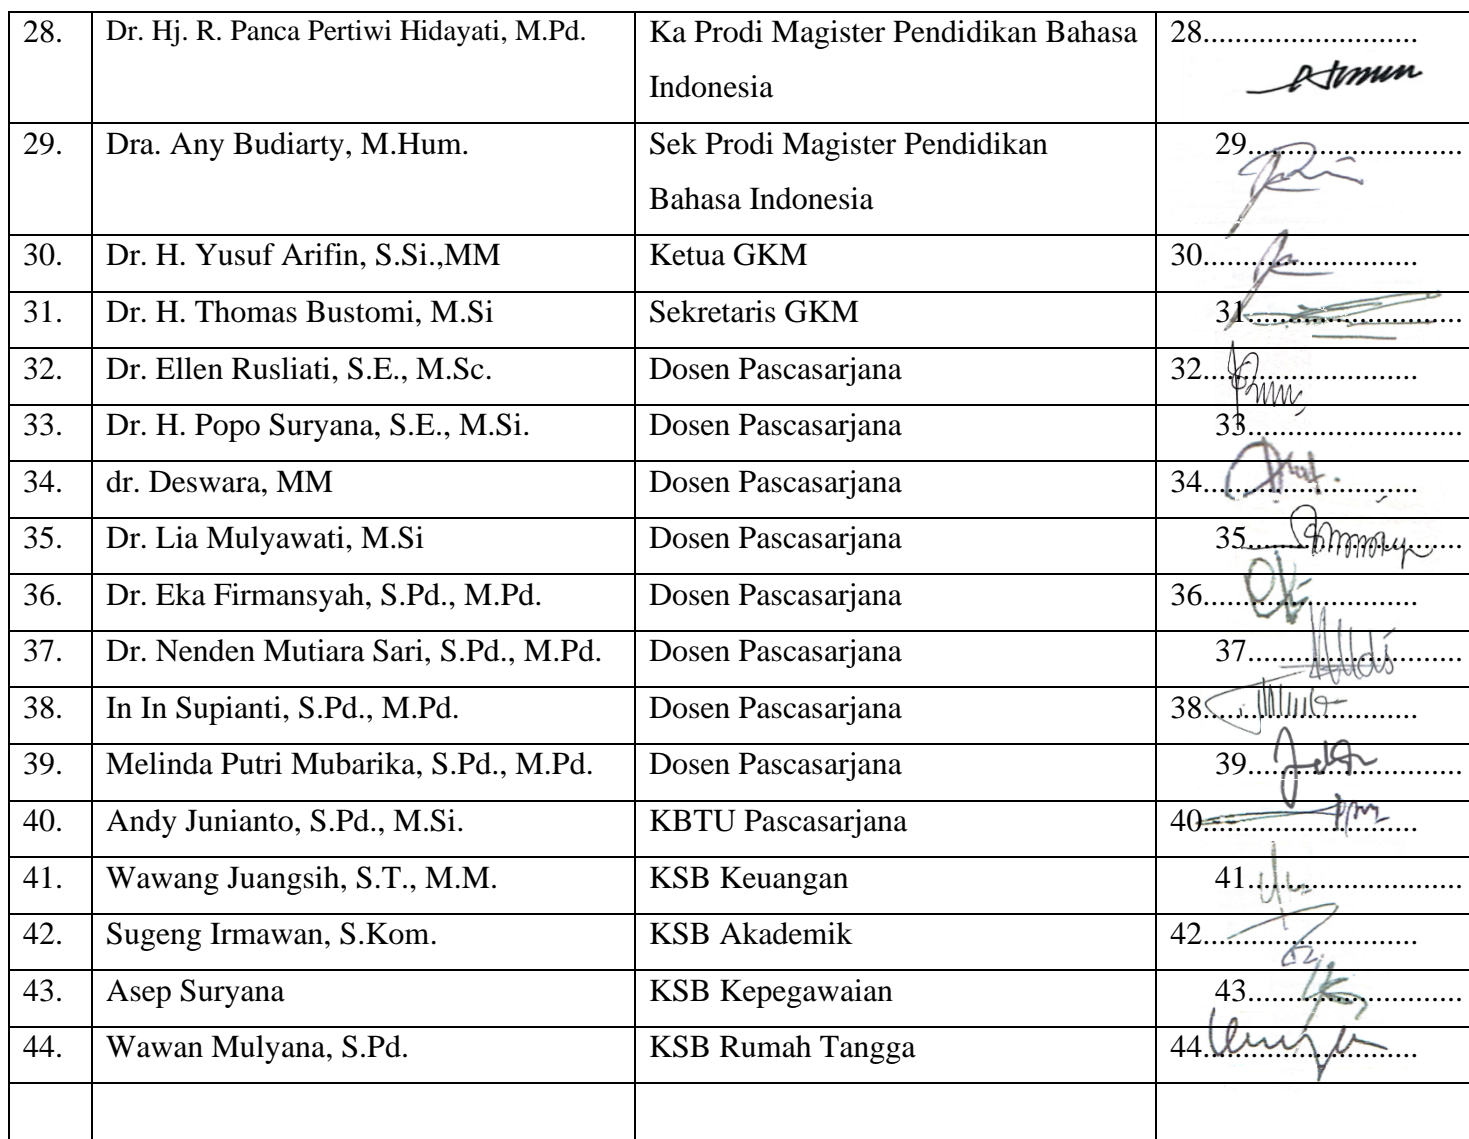 28. Dr. Hj. R. Panca Pertiwi Hidayati, M.Pd. Ka Prodi Magister Pendidikan Bahasa 28...........................
Indonesia
29. Dra. Any Budiarty, M.Hum. Sek Prodi Magister Pendidikan 29...........................
Bahasa Indonesia
30. Dr. H. Yusuf Arifin, S.Si.,MM Ketua GKM 30...........................
31. Dr. H. Thomas Bustomi, M.Si Sekretaris GKM 31...........................
32. Dr. Ellen Rusliati, S.E., M.Sc. Dosen Pascasarjana 32...........................
33. Dr. H. Popo Suryana, S.E., M.Si. Dosen Pascasarjana 33...........................
34. dr. Deswara, MM Dosen Pascasarjana 34...........................
35. Dr. Lia Mulyawati, M.Si Dosen Pascasarjana 35...........................
36. Dr. Eka Firmansyah, S.Pd., M.Pd. Dosen Pascasarjana 36...........................
37. Dr. Nenden Mutiara Sari, S.Pd., M.Pd. Dosen Pascasarjana 37...........................
38. In In Supianti, S.Pd., M.Pd. Dosen Pascasarjana 38...........................
39. Melinda Putri Mubarika, S.Pd., M.Pd. Dosen Pascasarjana 39...........................
40. Andy Junianto, S.Pd., M.Si. KBTU Pascasarjana 40...........................
41. Wawang Juangsih, S.T., M.M. KSB Keuangan 41...........................
42. Sugeng Irmawan, S.Kom. KSB Akademik 42...........................
43. Asep Suryana KSB Kepegawaian 43...........................
44. Wawan Mulyana, S.Pd. KSB Rumah Tangga 44...........................